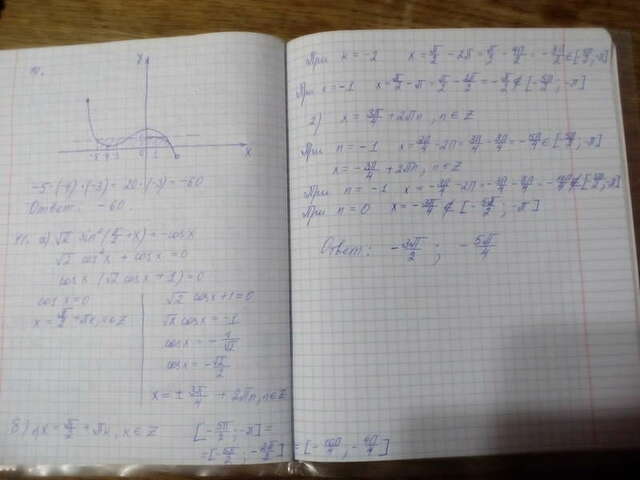 10.
y
x
-5 -4 -3 0 1
-5·(-4)·(-3) = 20·(-3) = -60
Ответ: -60.
11. а) √2 sin²(π/2 + x) = -cosx
√2 cos²x + cosx = 0
cosx (√2 cosx + 1) = 0
cosx = 0
x = π/2 + πк, к∈Z
√2 cosx + 1 = 0
√2 cosx = -1
cosx = -1/√2
cosx = -√2/2
x = ± 3π/4 + 2πn, n∈Z
x = π/2 + πк, к∈Z [-5π/2; -π] =
= [-5π/2; -2π/2] = [-10π/4; -4π/4]
При к = -2 x = π/2 - 2π = π/2 - 4π/2 = -3π/2 ∈ [-5π/2; -π]
При к = -1 x = π/2 - π = π/2 - 2π/2 = -π/2 ∉ [-5π/2; -π]
2) x = 3π/4 + 2πn, n∈Z
При n = -1 x = 3π/4 - 2π = 3π/4 - 8π/4 = -5π/4 ∈ [-5π/2; -π]
x = -3π/4 + 2πn, n∈Z
При n = -1 x = -3π/4 - 2π = -3π/4 - 8π/4 = -11π/4 ∉ [-5π/2; -π]
При n = 0 x = -3π/4 ∉ [-5π/2; -π]
Ответ: -3π/2; -5π/4